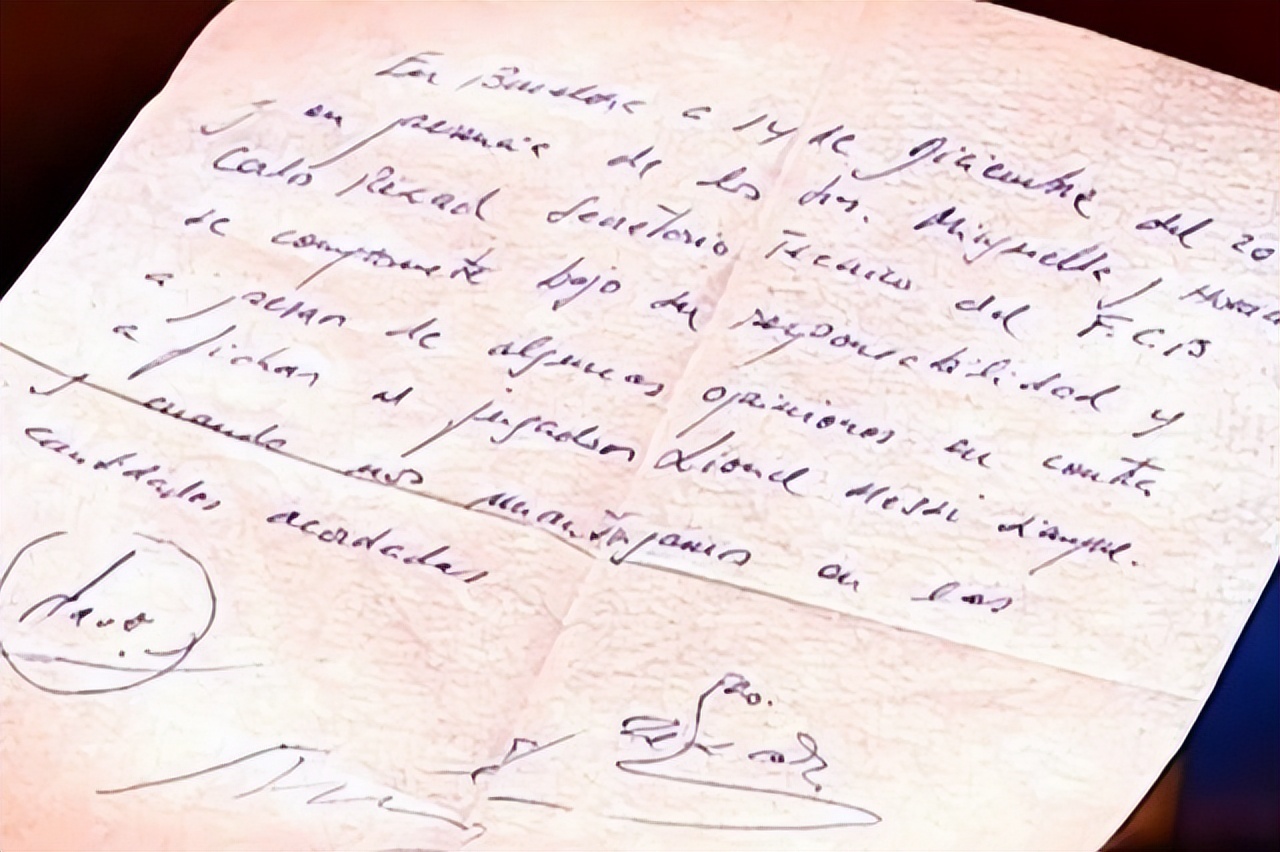 En Barcelona a 14 de Diciembre del 20
y en presencia de los Srs. Minguella y Horacio
Carlos Rexach Secretario Técnico del F.C.B
se compromete bajo su responsabilidad y
a pesar de algunas opiniones en contra
a fichar al jugador Lionel Messi siempre
y cuando nos mantengamos en las
cantidades acordadas
Fdo.